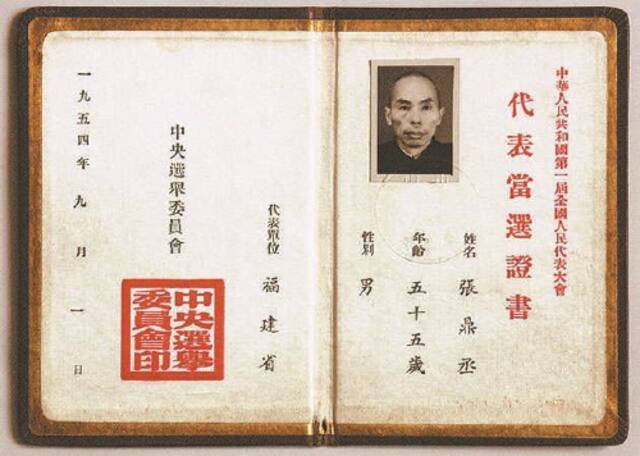 中華人民共和國第一屆全國人民代表大會
代表當選證書
姓名 張鼎丞
年齡 五十五歲
性別 男
代表單位 福建省
中央選舉委員會
中央選舉
委員會印
一九五四年九月一日